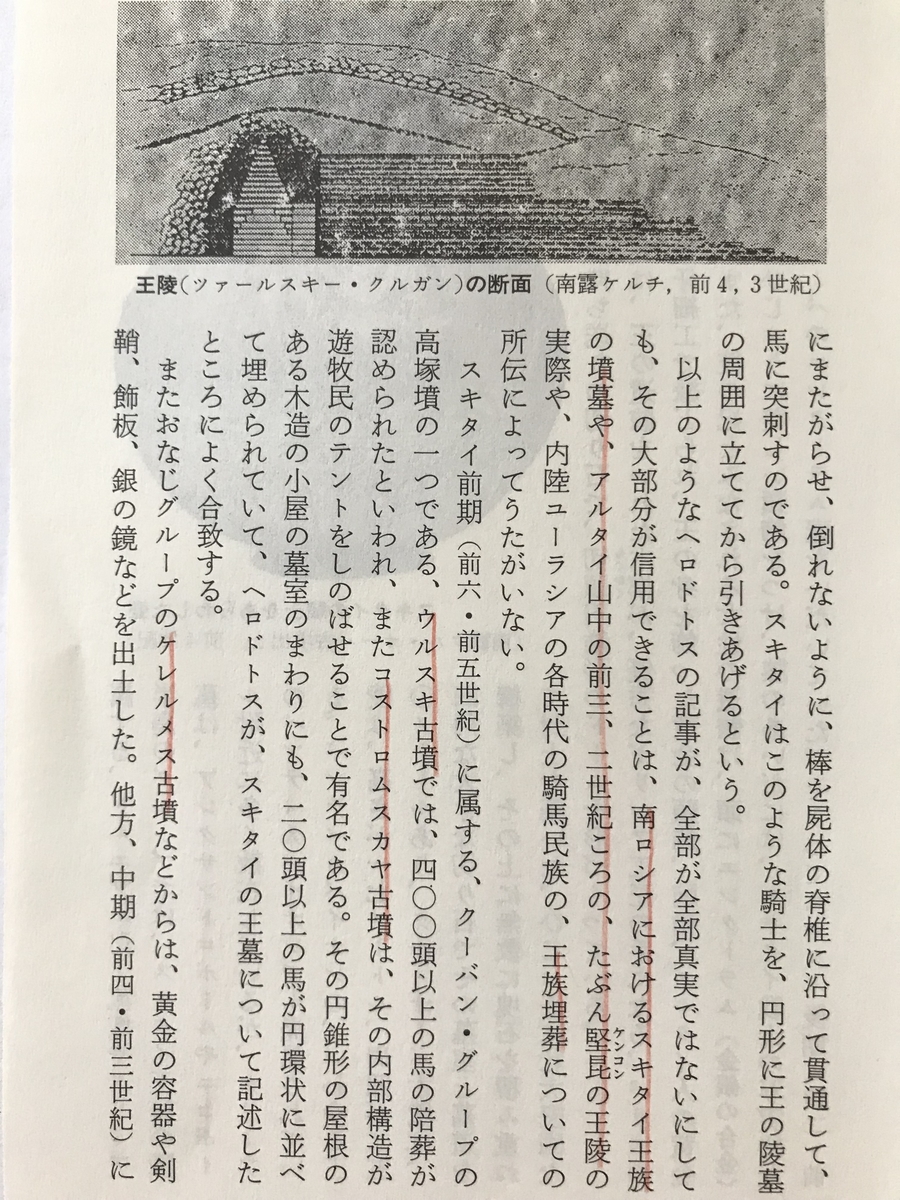 王陵(ツァールスキー・クルガン)の断面(南露ケルチ, 前4, 3世紀)
にまたがらせ、倒れないように、棒を屍体の脊椎に沿って貫通して、
馬に突刺すのである。スキタイはこのような騎士を、円形に王の陵墓
の周囲に立ててから引きあげるという。
以上のようなヘロドトスの記事が、全部が全部真実ではないにして
も、その大部分が信用できることは、南ロシアにおけるスキタイ王族
の墳墓や、アルタイ山中の前三、二世紀ころの、たぶん堅昆の王陵の
ケンコン
実際や、内陸ユーラシアの各時代の騎馬民族の、王族埋葬についての
所伝によってうたがいない。
スキタイ前期(前六・前五世紀)に属する、クーバン・グループの
高塚墳の一つである、ウルスキ古墳では、四〇〇頭以上の馬の陪葬が
認められたといわれ、またコストロムスカヤ古墳は、その内部構造が
遊牧民のテントをしのばせることで有名である。その円錐形の屋根の
ある木造の小屋の墓室のまわりにも、二〇頭以上の馬が円環状に並べ
て埋められていて、ヘロドトスが、スキタイの王墓について記述した
ところによく合致する。
またおなじグループのケレルメス古墳などからは、黄金の容器や剣
鞘、飾板、銀の鏡などを出土した。他方、中期(前四・前三世紀)に